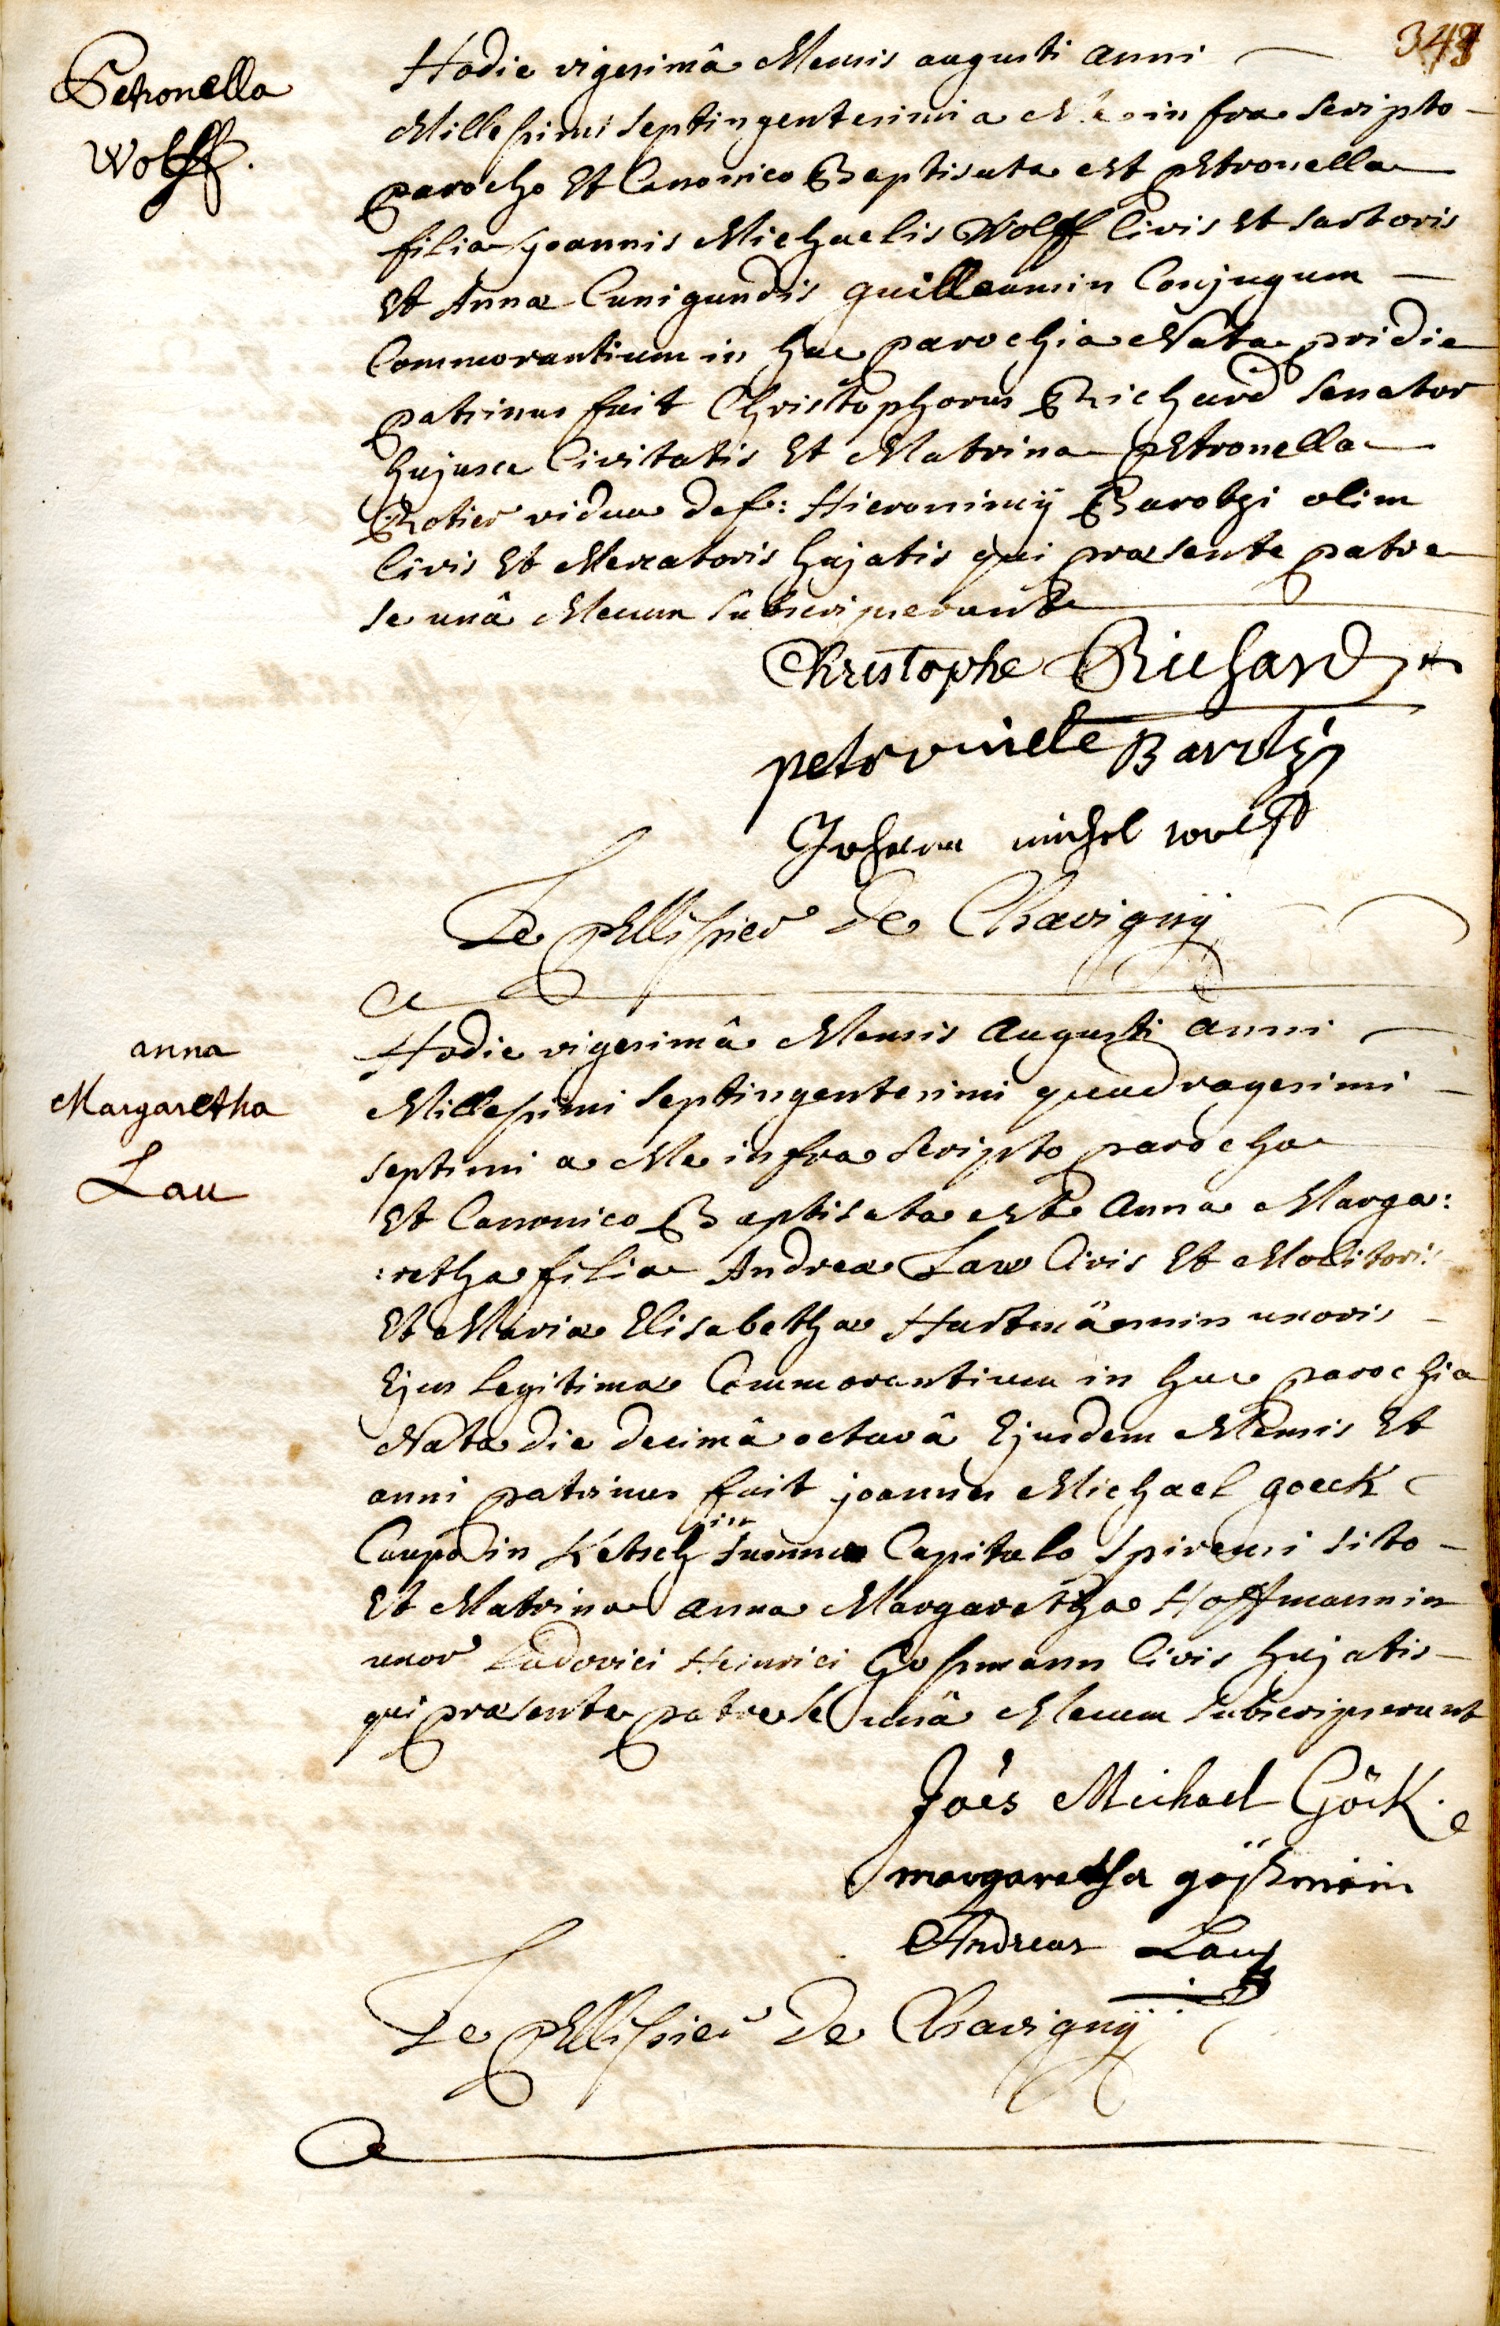 343
Petronella
Wolff.
Hodie vigesimâ Mensis augusti anni
Millesimi Septingentesimi a Me infra Scripto
parocho Et Canonico Baptisata est pEtronella
filia joannis Michaelis Wolff Civis Et sartoris
Et Annæ Cunigundis guilleaumin Conjugum
Commorantium in hac parochia Nata pridie
patrinus fuit Christophorus Richard Senator
hujusce Civitatis Et Matrina pEtronella
vidua def: Hieronimÿ Barotzi olim
Civis Et Mercatoris hujatis qui præsente patre
se unâ Mecum Subscripserunt
Christophe Richard
petronnelle Barotzi
Johann michel wolff
Le pEllissier De Chavignÿ
anna
Margaretha
Lau
Hodie vigesimâ Mensis Augusti anni
Millesimi Septingentesimi quadragesimi
septimi a Me infra Scripto parocho
Et Canonico Baptisata est Anna Marga:
:retha filia Andreæ Lau Civis Et Molitoris
Et Mariæ Elisabethæ Hartmännin uxoris
Ejus Legitimæ Commorantium in hac parochia
Nata die decimâ octavâ Ejusdem Mensis Et
anni patrinus fuit joannes Michael goeck
Caupo in Ketsch in summo Capitulo Spirensi sito
Et Matrina anna Margaretha Hoffmannin
uxor Ludovici Heinrici Gossmann Civis hujatis
qui præsente patre se unâ Mecum Subscripserunt
Joês Michael Göck.
margaretha gößmänin
Andreas Lau
Le pEllissier De Chavignÿ